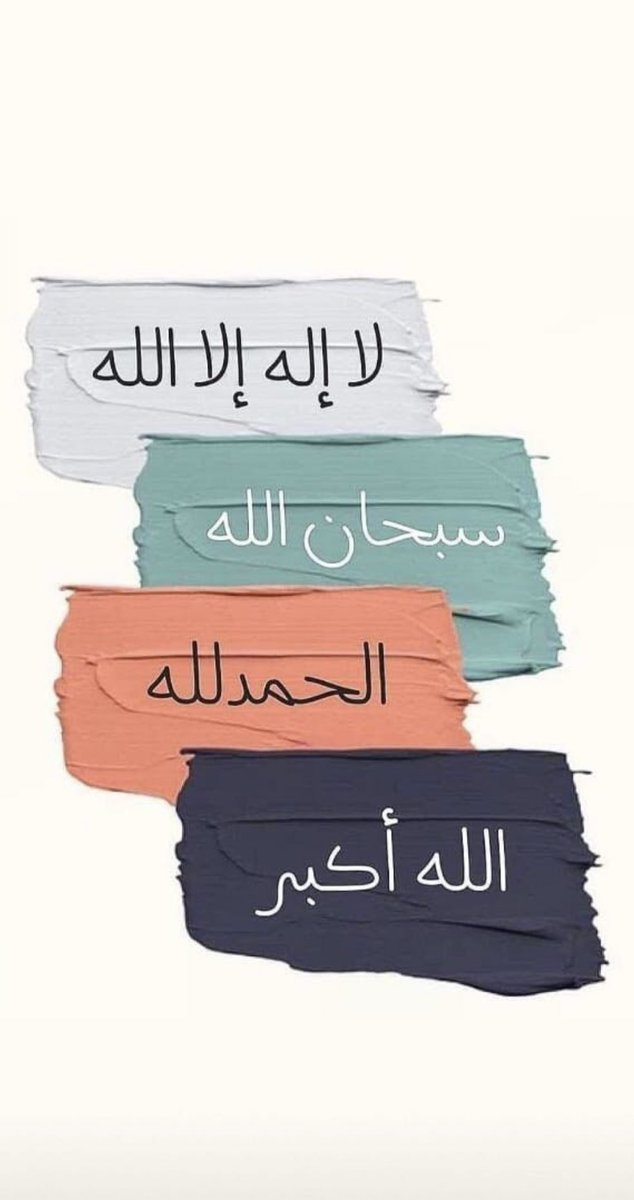 لا إله إلا الله
سبحان الله
الحمدلله
الله أكبر